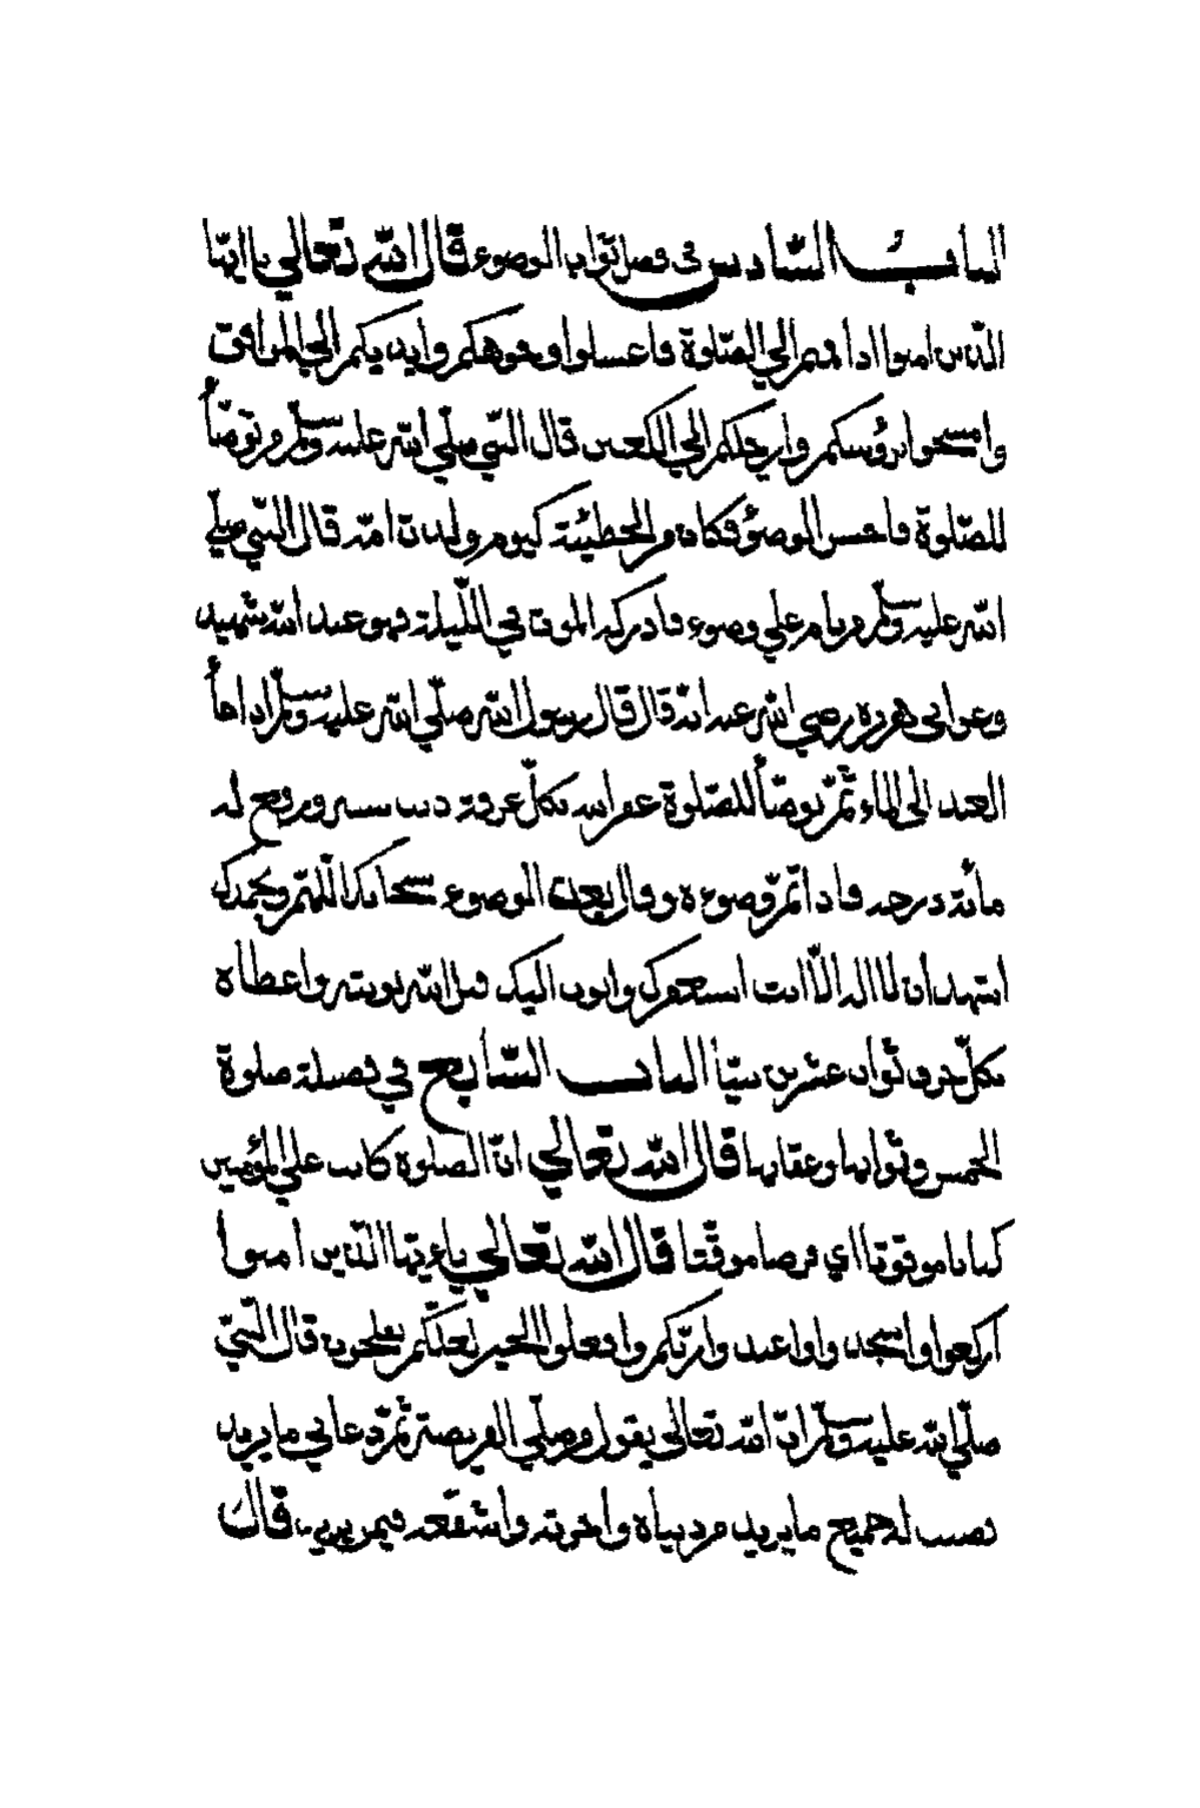 البـاب السّادس في فضل ثواب الوضوء قال الله تعالي ياايّها
الذين امنوا اذا قمتم الي الصّلوة فاغسلوا وجوهكم وايديكم الي المرافق
وامسحوا برؤسكم وارجلكم الي الكعبين قال النّبي صلّي الله عليه وسلّم من توضّأ
للصّلوة فاحسن الوضوء فكان من الخطيئة كيوم ولدت امّه قال النّبي صلّي
الله عليه وسلّم من نام علي وضوء فادركه الموت في اللّيلة فهو عند الله شهيد
وعن ابي هريرة رضي الله عنه انّه قال قال رسول الله صلّي الله عليه وسلّم اذا
العبد الي الماء ثمّ توضّأ للصّلوة غفر الله بكلّ ذنب ويرفع له
مائة درجة فاذا اتمّ وضوءه وقال بعد الوضوء سبحانك اللّهمّ وبحمدك
اشهد ان لا اله الّا انت استغفرك واتوب اليك قبل الله توبته واعطاه
بكلّ حرف ثواب عشرين البـاب السّابع في فضيلة صلوة
الخمس وثوابها وعقابها قال الله تعالي انّ الصلوة كانت علي المؤمنين
كتابا موقوتا اي فرضا موقّتا قال الله تعالي ياءيّها الذين امنوا
اركعوا واسجدوا واعبدوا ربّكم وافعلوا الخير لعلّكم تفلحون قال النّبيّ
صلّي الله عليه وسلّم انّ الله تعالي يقول من صلّي الفريضة ثمّ دعاني ما يريد
له جميع ما يريد من دنياه واخرته واشفّعه فيمن يريد قال